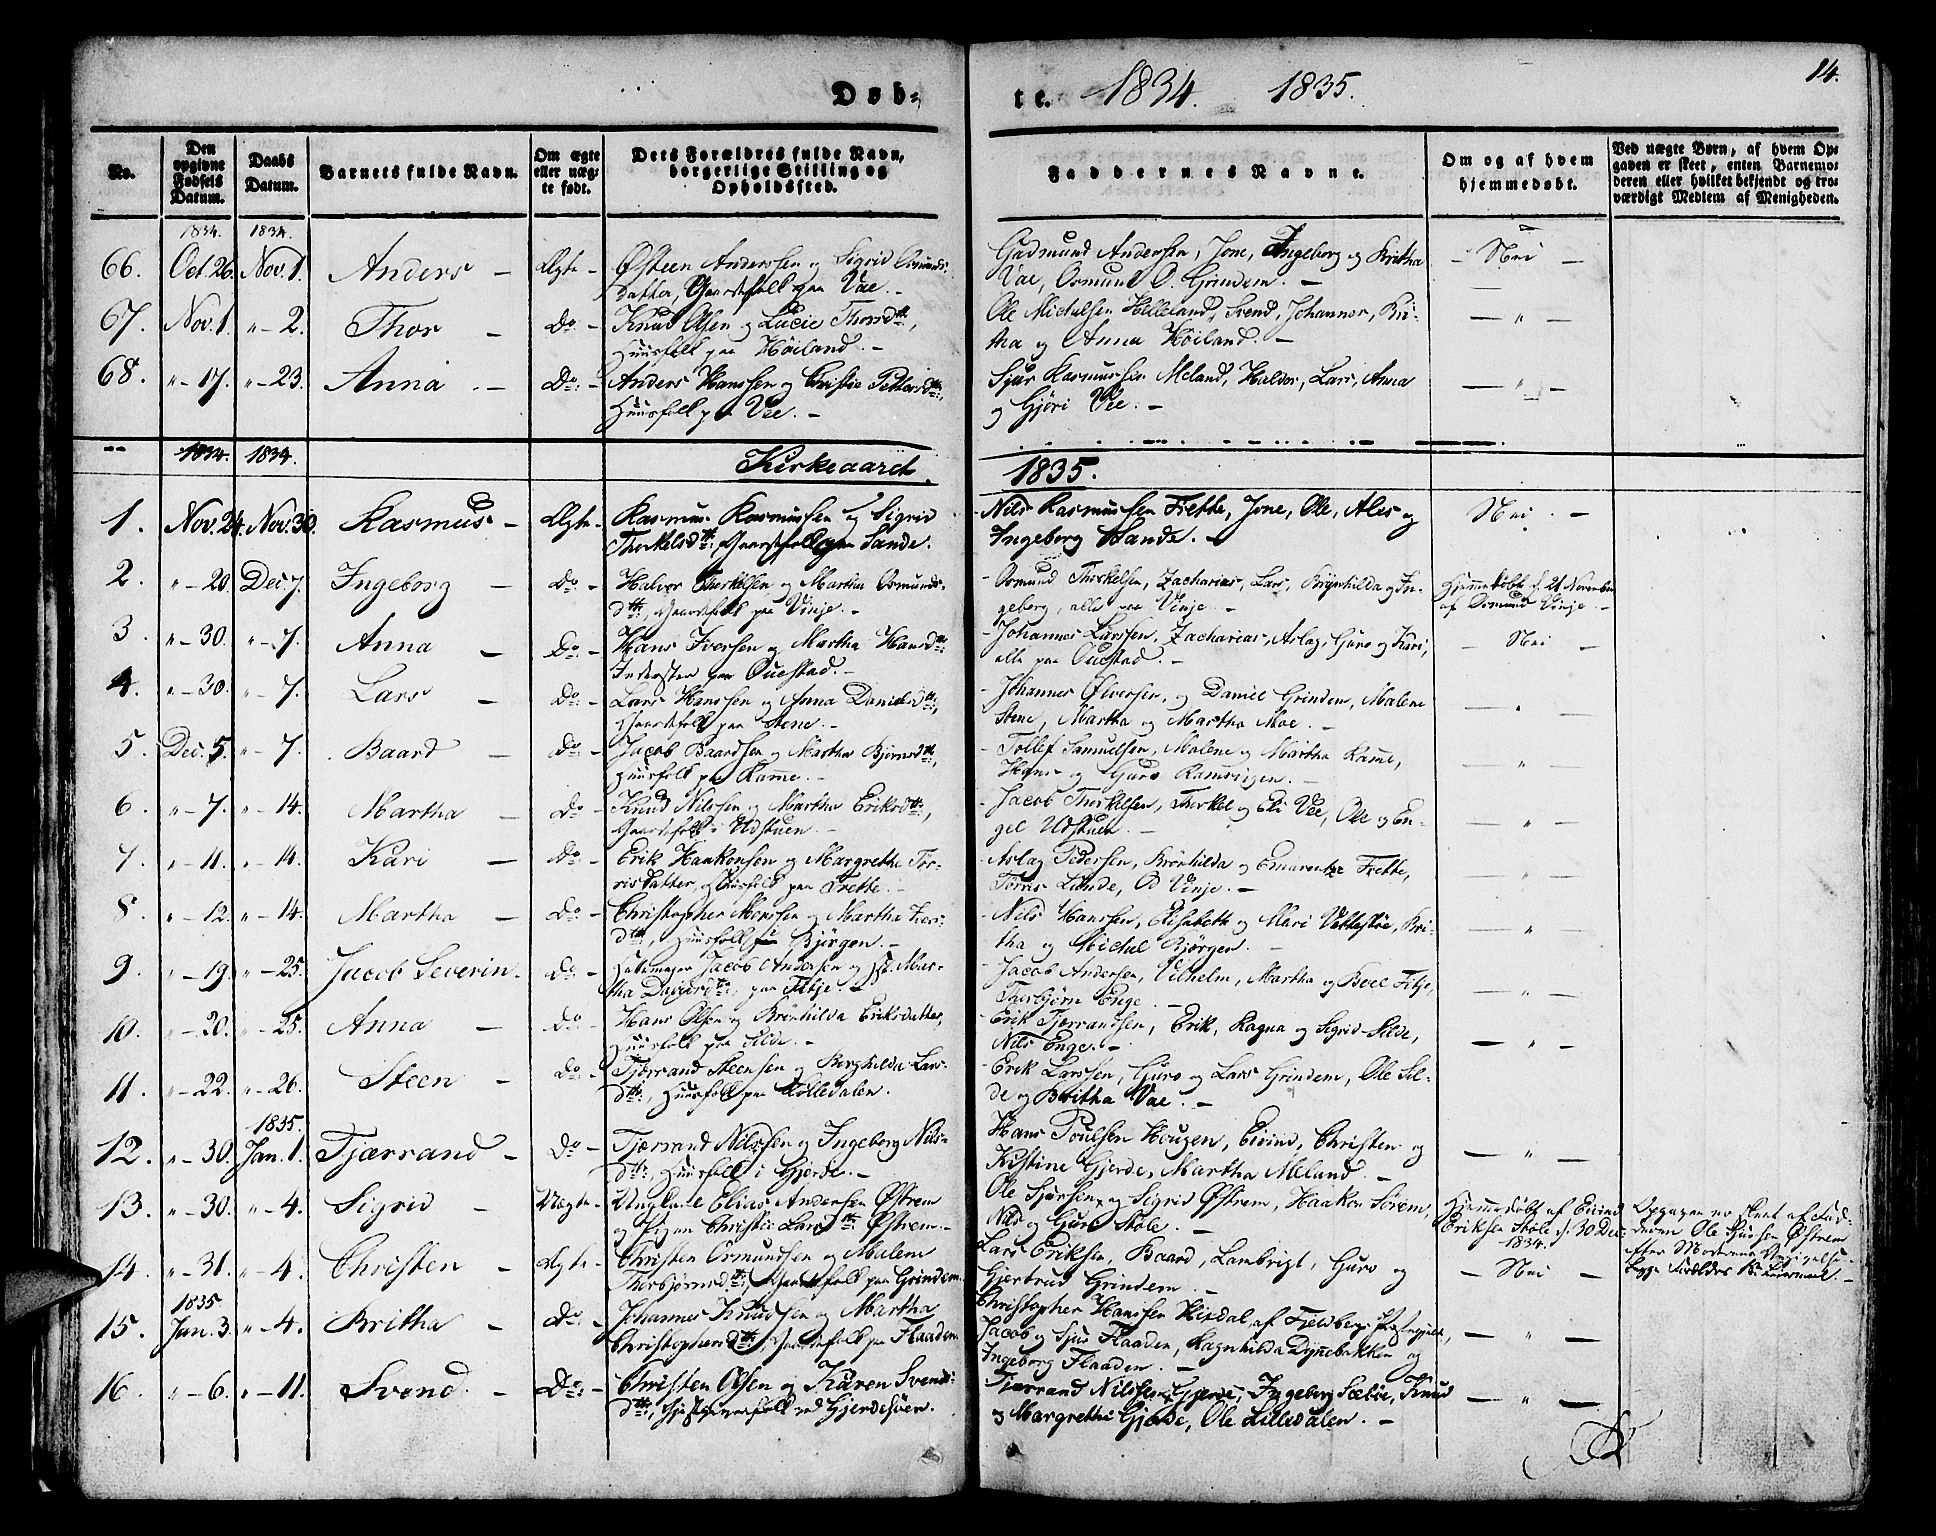 Døb-
te. 1834. 1835.
14.
No.
Den opgivne Fødsels Datum.
Daabs Datum.
Barnets fulde Navn.
Om ægte eller uægte født.
Dets Forældres fulde Navn, borgerlige Stilling og Opholdssted.
Faddernes Navne.
Om og af hvem hjemmedøbt.
Ved uægte Børn, af hvem Opgaven er skeet, enten Barnemoderen eller hvilket bekjendt og troværdigt Medlem af Menigheden.
1834. 1834.
66. Oct. 26. Nov. 1. Anders – Ægte – Østeen Anderssen og Sigrid Osmunds-
datter, Gaardsfolk paa Vae. –
Gudmund Andersen, Jone, Ingeborg og Britha
Vae, Osmund O. Grindem. –
– Nei –
67. Nov. 1. " – 2. Thor – Do – Knud Olsen og Lucie Thorsdtr,
Huusfolk paa Høiland. –
Ole Michelsen Helleland, Svend, Johannes, Bri-
tha og Anna Høiland. –
– " –
68. " – 17. " – 23. Anna – Do: – Anders Hanssen og Christie
Huusfolk paa Vee. –
Sjur Rasmussen Meland, Haldor, Lars, Anna
og Gjøri Vee. –
– " –
1834. 1834. Kirkeaaret 1835.
1. Nov. 24. Nov. 30. Rasmus – Ægte – Rasmus Rasmussen og Sigrid
Thorkelsdtr: Gaardsfolk paa Sande.
Nils Rasmussen Frette, Jone, Ole, Ales og
Ingeborg Sande. –
Nei. –
2. " – 20. Dec. 7. Ingeborg – Do: – Halvor Thorkelsen og Martha Osmunds-
dtr:, Gaardsfolk paa Vinje. –
Osmund Thorkelsen, Zacharias, Lars, Brynhilda og In-
geborg, alle paa Vinje. –
Hjemmedøbt d. 21 November
af Osmund Vinje. –
3. " – 30. " – 7. Anna – Do: – Hans Iversen og Martha Hansdtr:
Inderster paa Ouestad. –
Johannes Larssen, Zacharias, Aslag, Guro og Kari,
alle paa Ouestad. –
– Nei –
4. " – 30. " – 7. Lars – Do: – Lars Hanssen og Anna Danielsdtr:,
Gaardsfolk paa Stene. –
Johannes Ølversen, og Daniel Grindem, Malene
Stene, Martha og Martha Moe. –
– " –
5. Dec. 5. " – 7. Baard – Do: – Jacob Baardsen og Martha Bjørnsdtr,
Huusfolk paa Rame. –
Tollef Samuelsen, Malene og Martha Rame,
Hans og Guro Ramsvigen. –
– " –
6. " – 7. " – 14. Martha – Do: – Knud Nilssen og Martha Eriksdtr:,
Gaardsfolk i Udstuen. –
Jacob Thorkelsen, Thorkel og Eli Vee, Ole og En-
gel Udstuen. –
– " –
7. " – 11. " – 14. Kari – Do: – Erik Haakonsen og Margrethe Tør-
risdatter, Huusfolk paa Frette. –
Aslag Pedersen, Brønhilda og Emarentze Frette,
Tørris Lunde, Od Vinje. –
– " –
8. " – 12. " – 14. Martha – Do – Christopher Monssen og Martha
dtr:, Huusfolk paa Bjørgen. –
Nils Hanssen, Elisabeth og Mari Vettestøe, Bri-
tha og Michel Bjørgen. –
– " –
9. " – 19. " – 25. Jacob Severin. – Do: – Jacob Andersen og Mar-
tha Davidsdtr:, paa Fitje. –
Jacob Andersen, Vilhelm, Martha og Boel Fitje,
Thorbjørn Enge. –
– " –
10. " – 20. " – 25. Anna – Do: – Hans Olsen og Brønhilda Eriksdatter,
Huusfolk paa Silde. –
Erik Tjerrandsen, Erik, Ragna og Sigrid Silde,
Nils Enge. –
– " –
11. " – 22. " – 26. Steen – Do: – Tjerrand Steensen og Borghilda Lars-
dtr:, Huusfolk paa
Erik Larssen, Guro og Lars Grindem, Ole Sil-
de og Britha Vae. –
1835.
12. " – 30. Jan. 1. Tjærrand – Do: – Tjærrand Nilssen og Ingeborg Nils-
dtr:, Huusfolk i Gjerde. –
Hans Poulsen Hougen, Eivind, Christen og
Kistine Gjerde, Martha Meland. –
– " –
13. " – 30. " – 4. Sigrid – Uægte – Ungkarl Elias Andersen Østrem
og Pigen Christie Larsdtr Østrem. –
Ole Sjursen og Sigrid Østrem, Haakon Sørem,
Nils og Guro Stole. –
Hjemmedøbt af Eivind
Eriksen Stole d. 30 Dec.
1834.
Opgaven er skeet af Fad-
deren Ole Sjursen Østrem
efter Moderens
14. " – 31. " – 4. Christen – Ægte – Christen Osmundsen og Malene
Thorbjørnsdtr:, Gaardsfolk paa Grindem.
Lars Eriksen, Baard, Lambrigt, Guro og
Gjertrud Grindem. –
– Nei –
1835
15. Jan. 3. " – 4. Britha – Do: – Johannes Knudssen og Martha
Christophersdtr:, Gaardsfolk paa Flaaden.
Christopher Hanssen Hisdal, af Fjeldbergs Præstegjeld,
Jacob og Sjur Flaaden, Ragnhilda Dynnebakken og
Ingeborg Flaaden. –
– " –
16. " – 6. " – 11. Svend. – Do: – Christen Olsen og Karen Svends-
dtr:, ved Gjerdesøen.
Tjærrand Nilssen Gjerde, Ingeborg Sæbøe, Knud
og Margrethe Gjerde, Ole Lilledalen. –
– " –